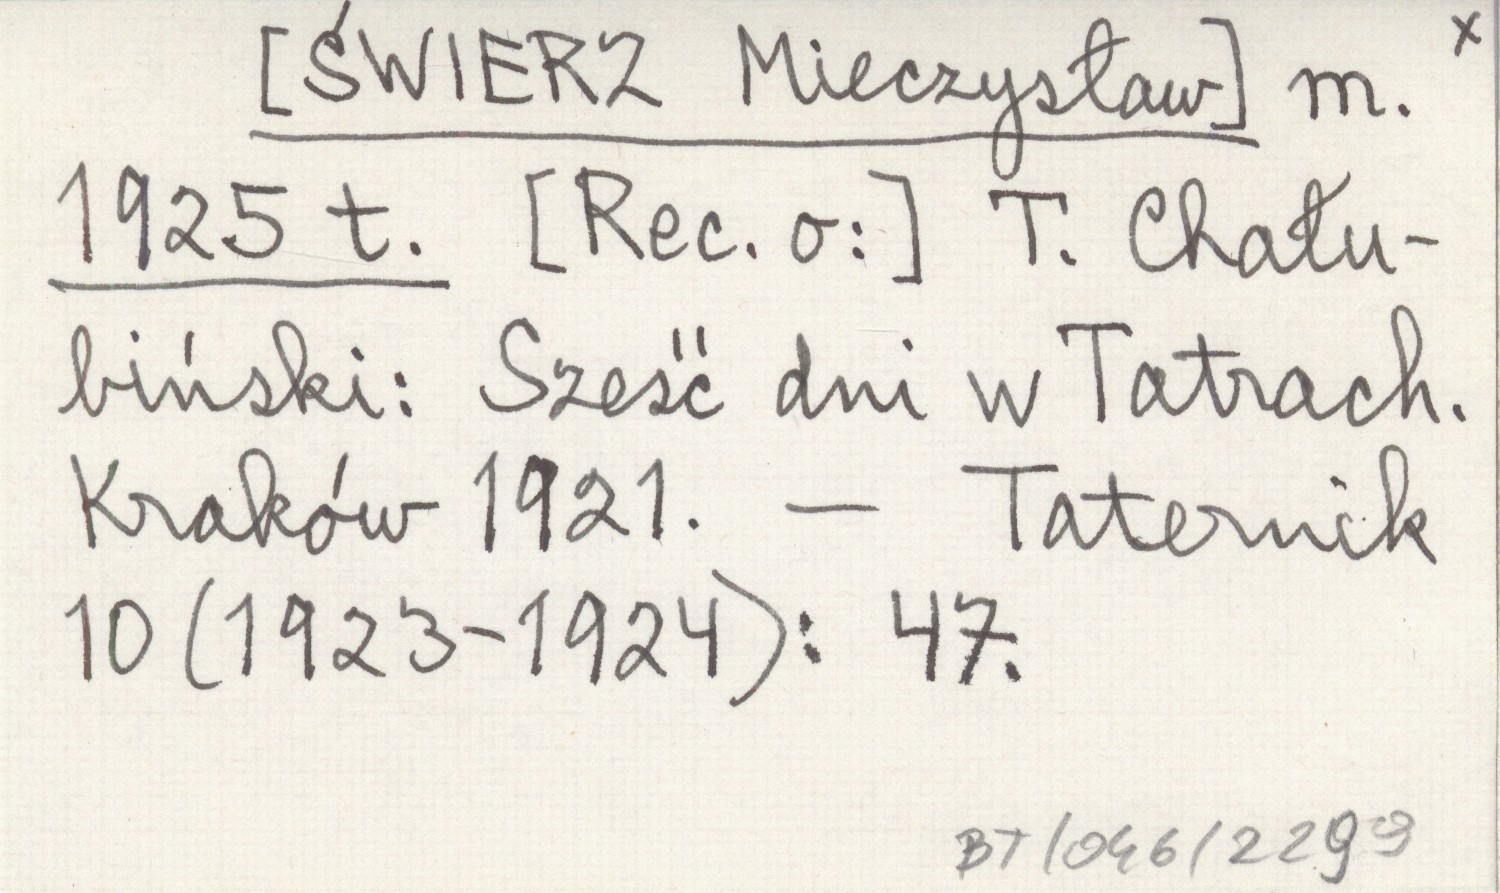 [ŚWIERZ Mieczysław] m. x
1925 t. [Rec. o:] T. Chału-
biński: Sześć dni w Tatrach.
Kraków 1921. — Taternik
10 (1923-1924): 47.
BT/046/2299